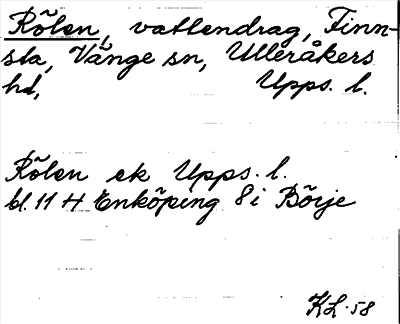 Rölen, vattendrag, Finn-
sta, Vänge sn, Ulleråkers
hd, Upps. l.
Rölen ek Upps. l.
bl. 11 H Enköping 8 i Börje
KL-58